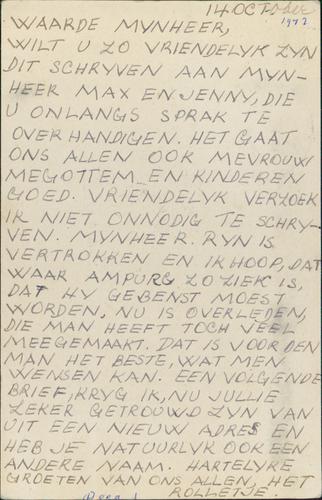 14 OCTober
1972
WAARDE MYNHEER,
WILT U ZO VRIENDELYK ZYN
DIT SCHRYVEN AAN MYN-
HEER MAX EN JENNY, DIE
U ONLANGS SPRAK TE
OVERHANDIGEN. HET GAAT
ONS ALLEN OOK MEVROUW
MEGOTTEM EN KINDEREN
GOED. VRIENDELYK VERZOEK
IK NIET ONNODIG TE SCHRY-
VEN. MYNHEER. RYN IS
VERTROKKEN EN IK HOOP, DAT
WAAR AMPURG ZO ZIEK IS,
DAT HY GEBENST MOEST
WORDEN, NU IS OVERLEDEN,
DIE MAN HEEFT TOCH VEEL
MEEGEMAAKT. DAT IS VOOR DEN
MAN HET BESTE, WAT MEN
WENSEN KAN. EEN VOLGENDE
BRIEF, KRYG IK, NU JULLIE
ZEKER GETROUWD ZYN VAN
UIT EEN NIEUW ADRES EN
HEB JE NATUURLYK OOK EEN
ANDERE NAAM. HARTELYKE
GROETEN VAN ONS ALLEN, HET
ROLLETJE.